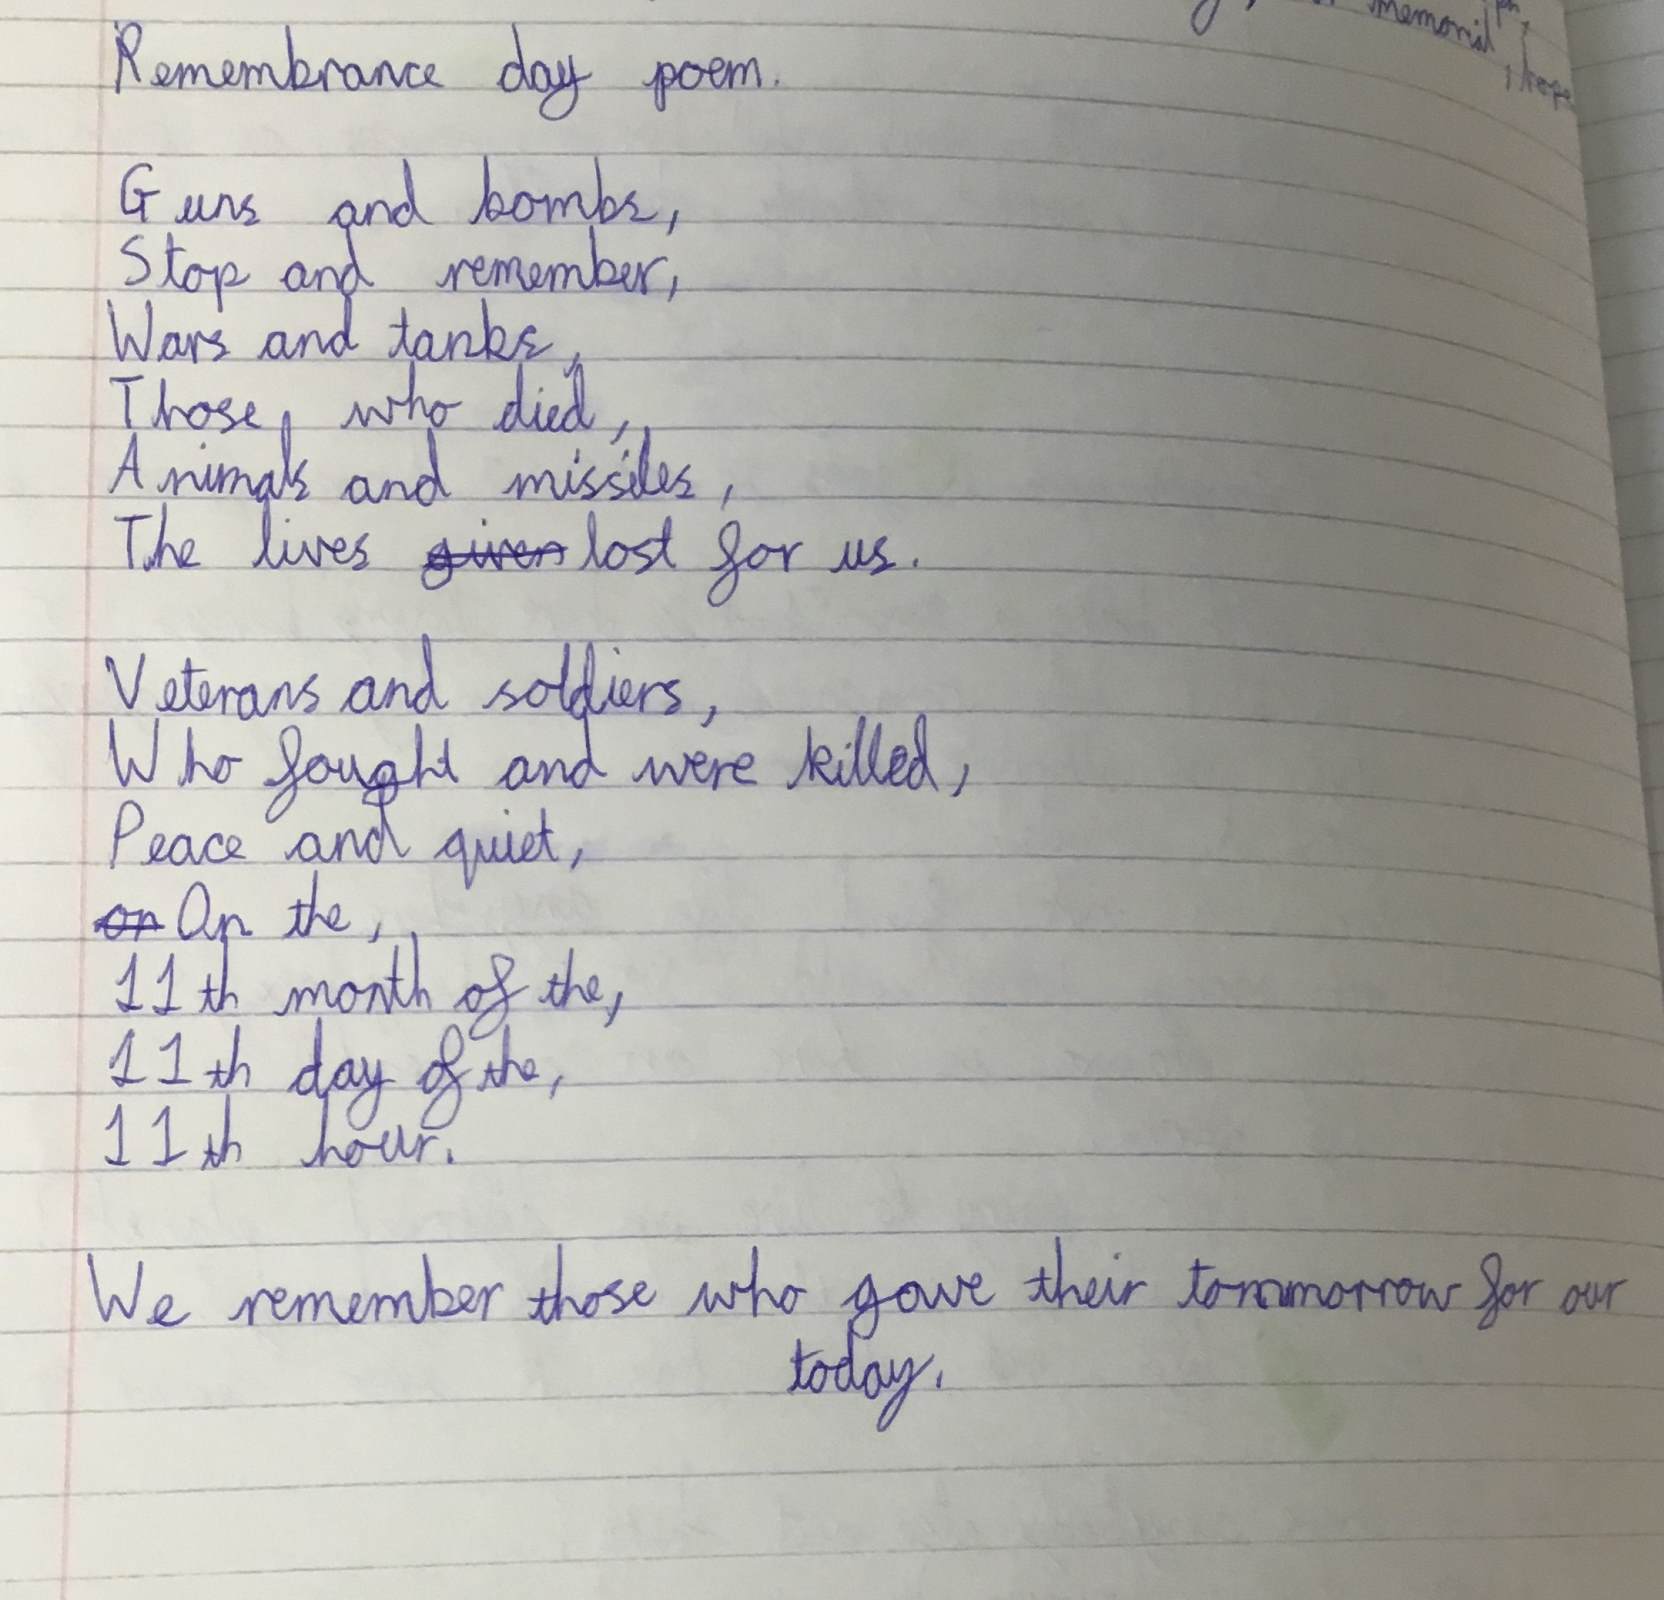 memorial
, hope
Remembrance day poem.
Guns and bombs,
Stop and remember,
Wars and tanks,
Those who died,
Animals and missiles,
The lives given lost for us.
Veterans and soldiers,
Who fought and were killed,
Peace and quiet,
on On the,
11th month of the,
11th day of the,
11th hour.
We remember those who gave their tommorrow for our
today.